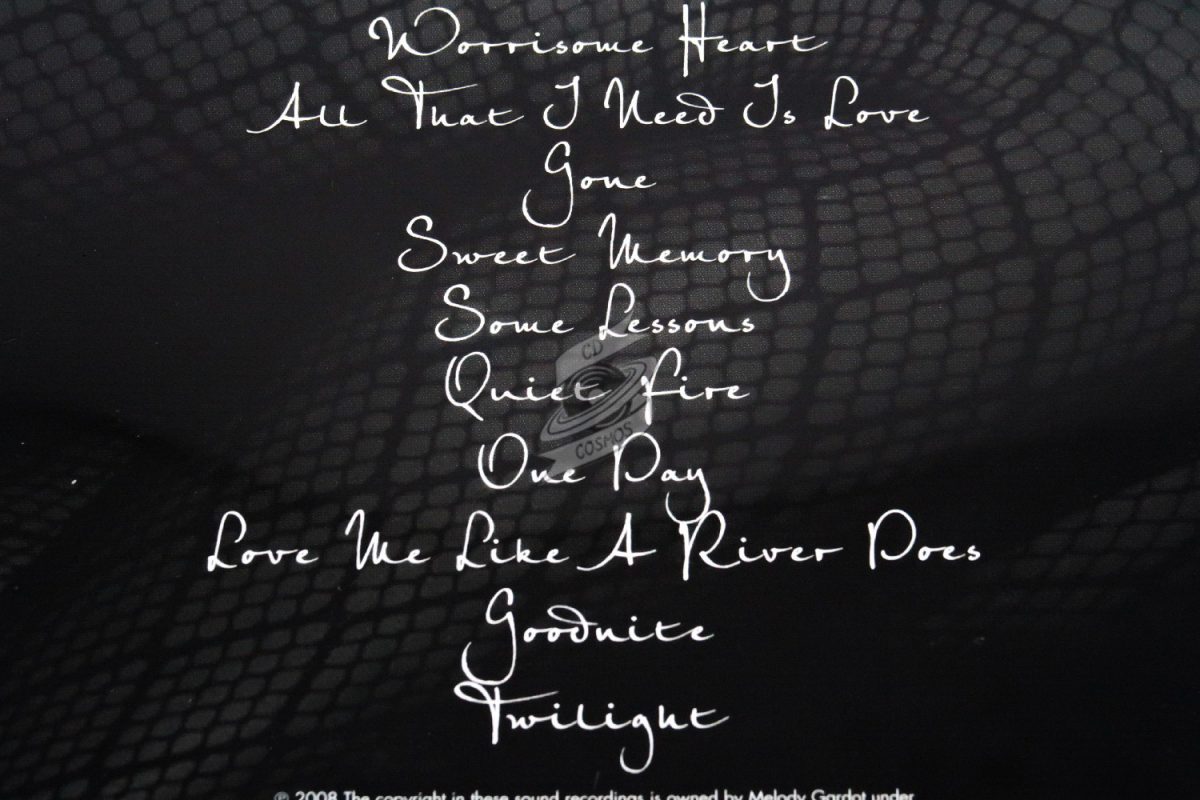 Worrisome Heart
All That I Need Is Love
Gone
Sweet Memory
Some Lessons
CD
Quiet Fire
COSMOS
One Day
Love Me Like A River Does
Goodnite
Twilight
℗ 2008 The copyright in these sound recordings is owned by Melody Gardot under